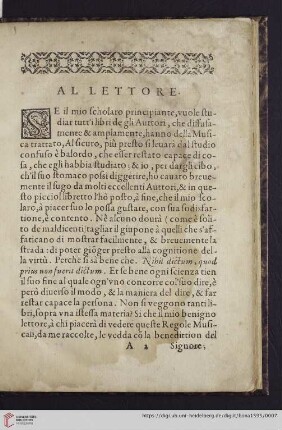 AL LETTORE.
SE il mio scholaro principiante, vuole stu-
diar tutt'i libri de gli Auttori, che diffusa-
mente & ampiamente, hanno della Musi-
ca trattato, Al sicuro, più presto si leuarà dal studio
confuso è balordo, che esser restato capace di co-
sa, che egli habbia studiato: & io, per dargli cibo,
ch'il suo stomaco possi diggerire, hò cauato breue-
mente il sugo da molti eccellenti Auttori, & in que-
sto picciol libretto l'hò posto, à fine, che il mio sco-
laro, à piacer suo lo possa gustare, con sua sodisfat-
tione, è contento. Nè alcuno dourà (come è soli-
to de maldicenti) tagliar il giupone à quelli che s'af-
faticano di mostrar facilmente, & breuemente la
strada: di poter giōger presto alla cognitione del-
la virtù. Perche si sà bene che. Nihil dictum, quod
prius non fuerit dictum. Et se bene ogni scienza tien
il suo fine al quale ogn'vno concorre col suo dire, è
però diuerso il modo, & la maniera del dire, & far
restar capace la persona. Non si veggono tanti li-
bri, sopra vna istessa materia? Si che il mio benigno
lettore, à chi piacerà di vedere queste Regole Musi-
cali, da me raccolte, le vedda cō la benedition del
A 2 Signore;
https://digi.ub.uni-heidelberg.de/diglit/bona1595/0007